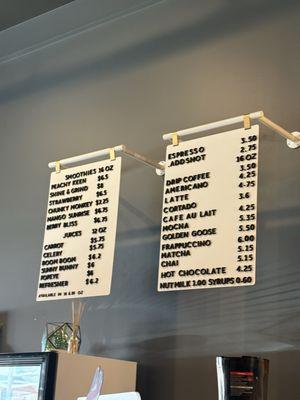 SMOOTHIES 16 OZ
PEACHY KEEN $6.5
SHINE & GRIND $8
STRAWBERRY $6.5
CHUNKY MONKEY $2.25
MANGO SUNRISE $6.75
BERRY BLISS $6.75
JUICES 12 OZ
CARROT $5.75
CELERY $5.75
BOOM BOOM $6.2
SUNNY BUNNY $6
POPEYE $6
REFRESHER $6.2
AVAILABLE IN 16 & 24 OZ
ESPRESSO 3.50
ADD SHOT 2.75
16 OZ
DRIP COFFEE 3.50
AMERICANO 4.25
LATTE 4.75
CORTADO 3.6
CAFE AU LAIT 4.25
MOCHA 5.35
GOLDEN GOOSE 5.50
FRAPPUCCINO 6.00
MATCHA 5.15
CHAI 5.15
HOT CHOCOLATE 4.25
NUTMILK 1.00 SYRUPS 0.60